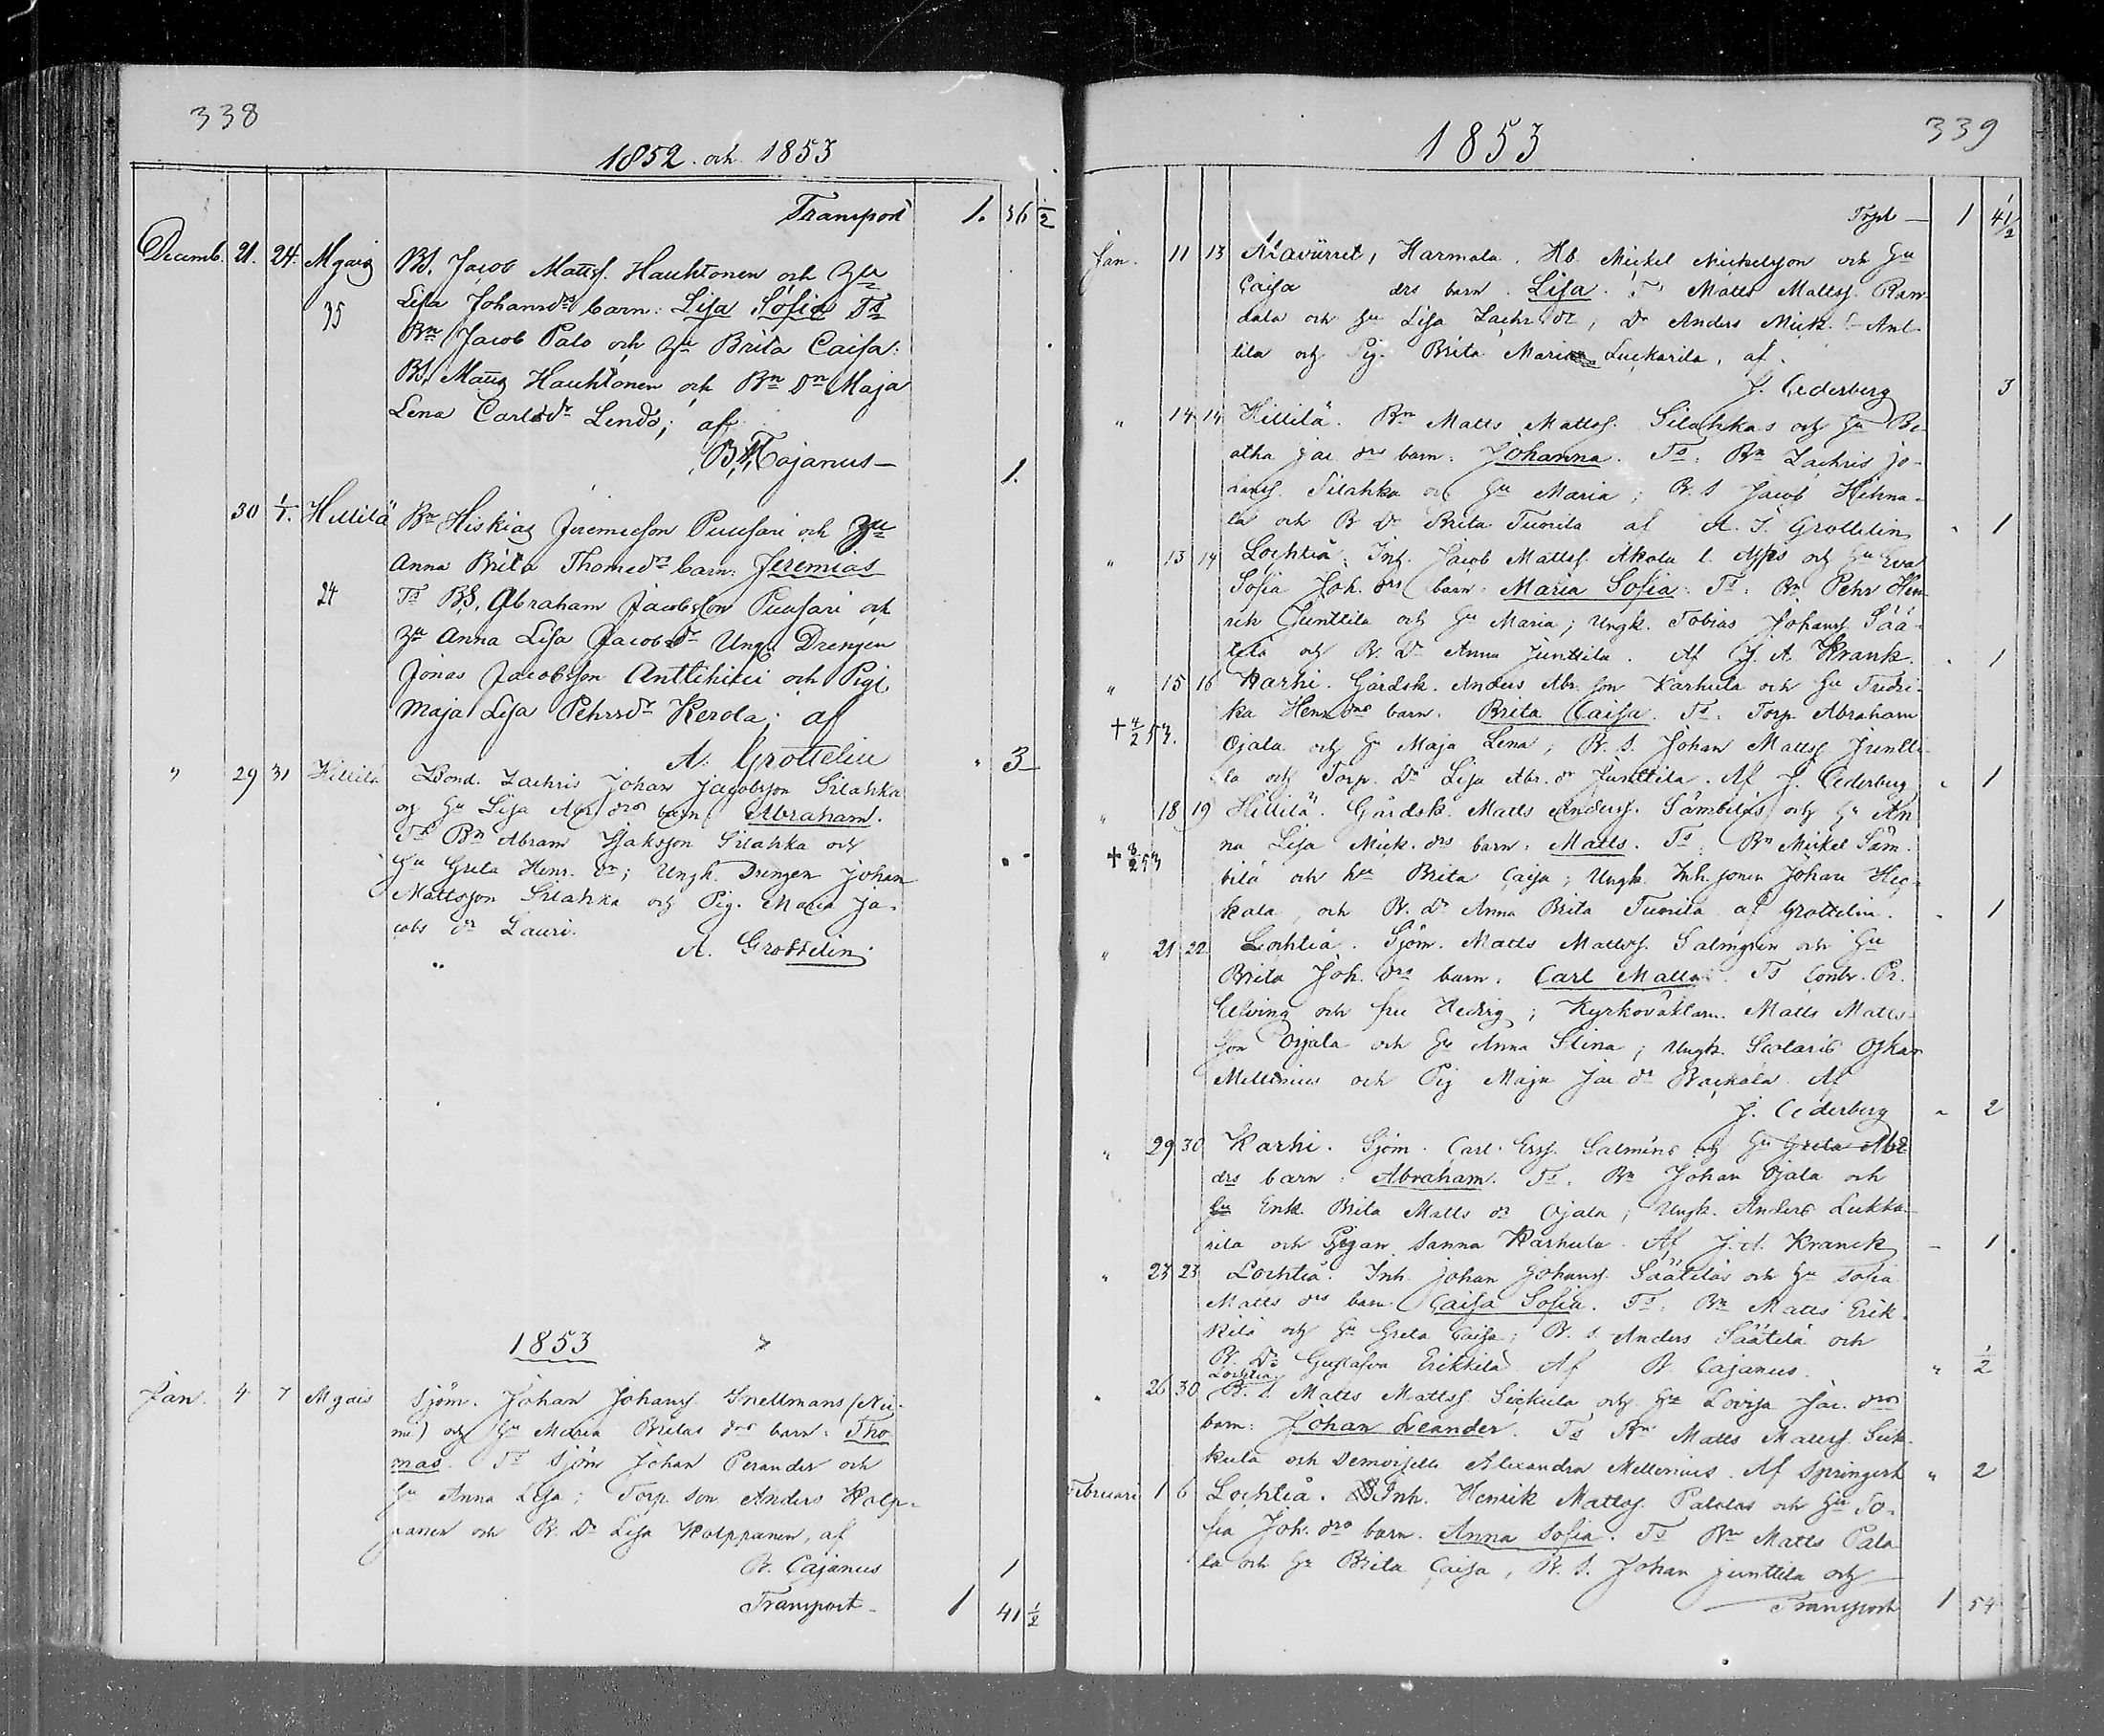 338
1852 och 1853
Transport 1. 36 1/2
Decemb. 21. 24. Mgais BS. Jacob Mattss. Hauhtonen och Hu
35 Lisa Johansdrs barn: Lisa Sofia Ts
Bn Jacob Palo och Hu Brita Caisa:
BS. Hauhtonen och Bn Dn Maja
Lena Carlsdr Lends; af
B. Cajanus — 1.
30 1/1. Hillilä Bn Hiskias Jeremiesson Puusari och Hu
Anna Brita Thomedrs barn: Jeremias
24 Ts BS. Abraham Jacobsson Puusari och
Hu Anna Lisa Jacobsdr Ungk. Drengen
Jonas Jacobsson Anttihiki och Pig.
Maja Lisa Pehrsdr Kerola; af
A. Grottelin " 3
" 29 31 Hillilä Bond. Zachris Johan Jacobsson Silahka
och Hu Lisa Abr drs barn Abraham.
Ts Bn Abram Isaksson Silahka och
Hu Greta Henr. dr; Ungk. Drengen Johan
Mattsson Silahka och Pig. Maria Ja-
cobs dr Lauri.
A. Grottelin.
1853
Jan. 4 7 Mgais Sjöm. Johan Johanss. Snellmans (Nie-
mi) och Hu Maria Britas drs barn: Tho
mas. Ts Sjöm Johan Perander och
Hu Anna Lisa; Torp. son Anders Kolp-
panen och B. Dr Lisa Kolppanen, af
B. Cajanus 1
Transport — 1 41 1/2
339
1853
Trpt — 1 41 1/2
Jan. 11 13 Harmala. Hb. Mickel Mickelsson och Hu
Caisa drs barn. Lisa. Ts Matts Mattss. Ran-
dala och Hu Lisa Zachr dr; Dr Anders Mick. s. Ant-
tila och Pig. Brita Maria Luckarila, af.
J. Cederberg 3
" 14 14 Hillilä. Bn Matts Mattss. Silahkas och Hu Be-
atha Jac drs barn: Johanna. Ts: Bn Zachris Jo-
hanss. Silahka och Hu Maria; B. S Jacob Hihna-
la och B Dr Brita Tuorila af A. I. Grottelin " 1
" 13 14 Lochteå. Inh. Jacob Mattss. Akola och Hu Eva
Sofia Joh. drs barn: Maria Sofia: Ts: Bn Pehr Hen-
rik Junttila och Hu Maria; Ungk. Tobias Johanss Sää-
telä och B. Dr Anna Junttila. Af J. A. Krank. " 1
" 15 16 Karhi. Gårdsk. Anders Abr. son Karhula och Hu Fredri-
+ 4/2 53. ka Henr drs barn. Brita Caisa. Ts. Torp. Abraham
Ojala och Hu Maja Lena; B. S. Johan Mattss Juntti-
la och Torp. Dr Lisa Abr. dr Junttila. Af J. Cederberg " 1
" 18 19 Hillilä. Gårdsk. Matts Anderss. Sämbiläs och Hu An
+ 8/2 53 na Lisa Mick. drs barn: Matts. Ts: Bn Mickel Säm-
bilä och hu Brita Caisa; Ungk. Inh. sonen Johan Hie-
kala, och B. dr Anna Brita Tuorila af Grottelin. " 1
" 21 22 Lochteå. Sjöm. Matts Mattss. Salmgren och Hu
Brita Joh. drs barn: Carl Matts. Ts Contr. Pr.
Elfving och fru Hedvig; Kyrkoväktaren Matts Matts-
son Ojala och Hu Anna Stina; Ungk. Scolaris Oskar
Mellenius och Pig Maja Jac dr Backala. Af
J. Cederberg " 2
" 29 30 Karhi. Sjöm. Carl Erss. Salmins och Hu Greta Abr
drs barn: Abraham. Ts. Bn Johan Ojala och
Hu Enk. Brita Matts dr Ojala; Ungk. Anders Lukka-
rila och Pigan Sanna Karhula. Af J. A. Kranck — 1.
" 23 23 Lochteå. Inh. Johan Johanss. Säätiläs och Hu Sofia
Matts drs barn. Caisa Sofia. Ts: Bn Matts Erik-
kilä och Hu Greta Caisa; B. S. Anders Säätilä och
B. Dr Gustafva Erikkilä. Af B. Cajanus. " 1/2
Lochteå
" 26 30 B. S. Matts Mattss. Sickula och Hu Lovisa Jac. drs
barn: Johan Leander. Ts Bn Matts Mattss. Sik-
kula och Demoiselle Alexandra Mellenius. Af Springert " 2
Februari 1 6 Lochteå. Inh. Henrik Mattss. Palolas och Hu So-
fia Joh. drs barn. Anna Sofia. Ts Bn Matts Palo
la och Hu Brita Caisa, B. S. Johan Junttila och
Transport 1 54